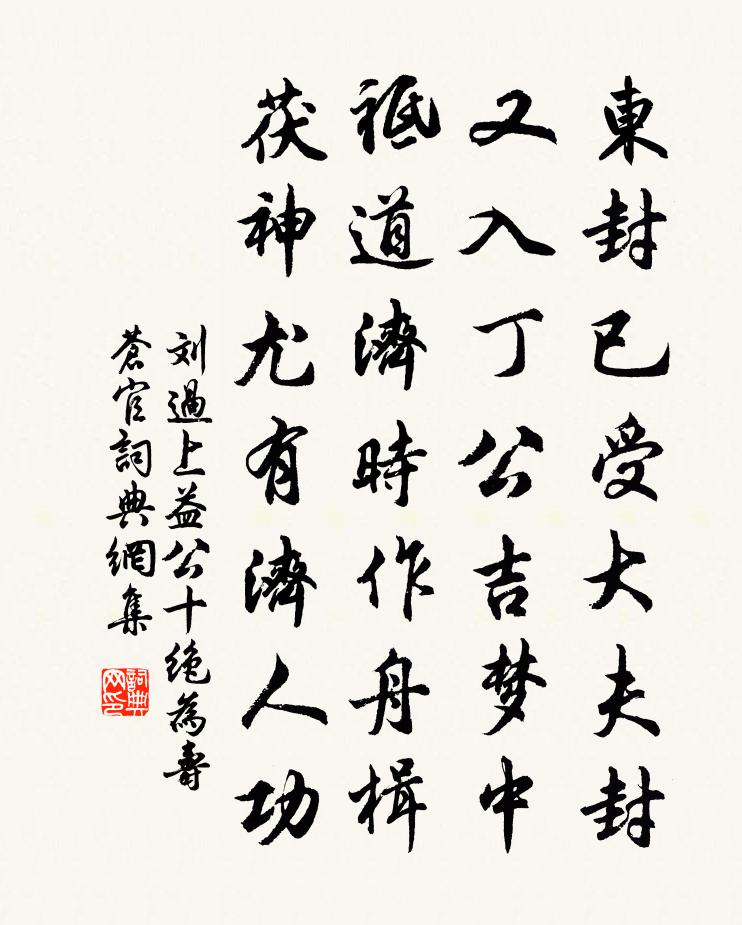 東封已受大夫封
又入丁公吉梦中
祗道濟時作舟楫
茯神尤有濟人功
刘過上益公十绝為壽
蒼官詞典網集
詞典
网印